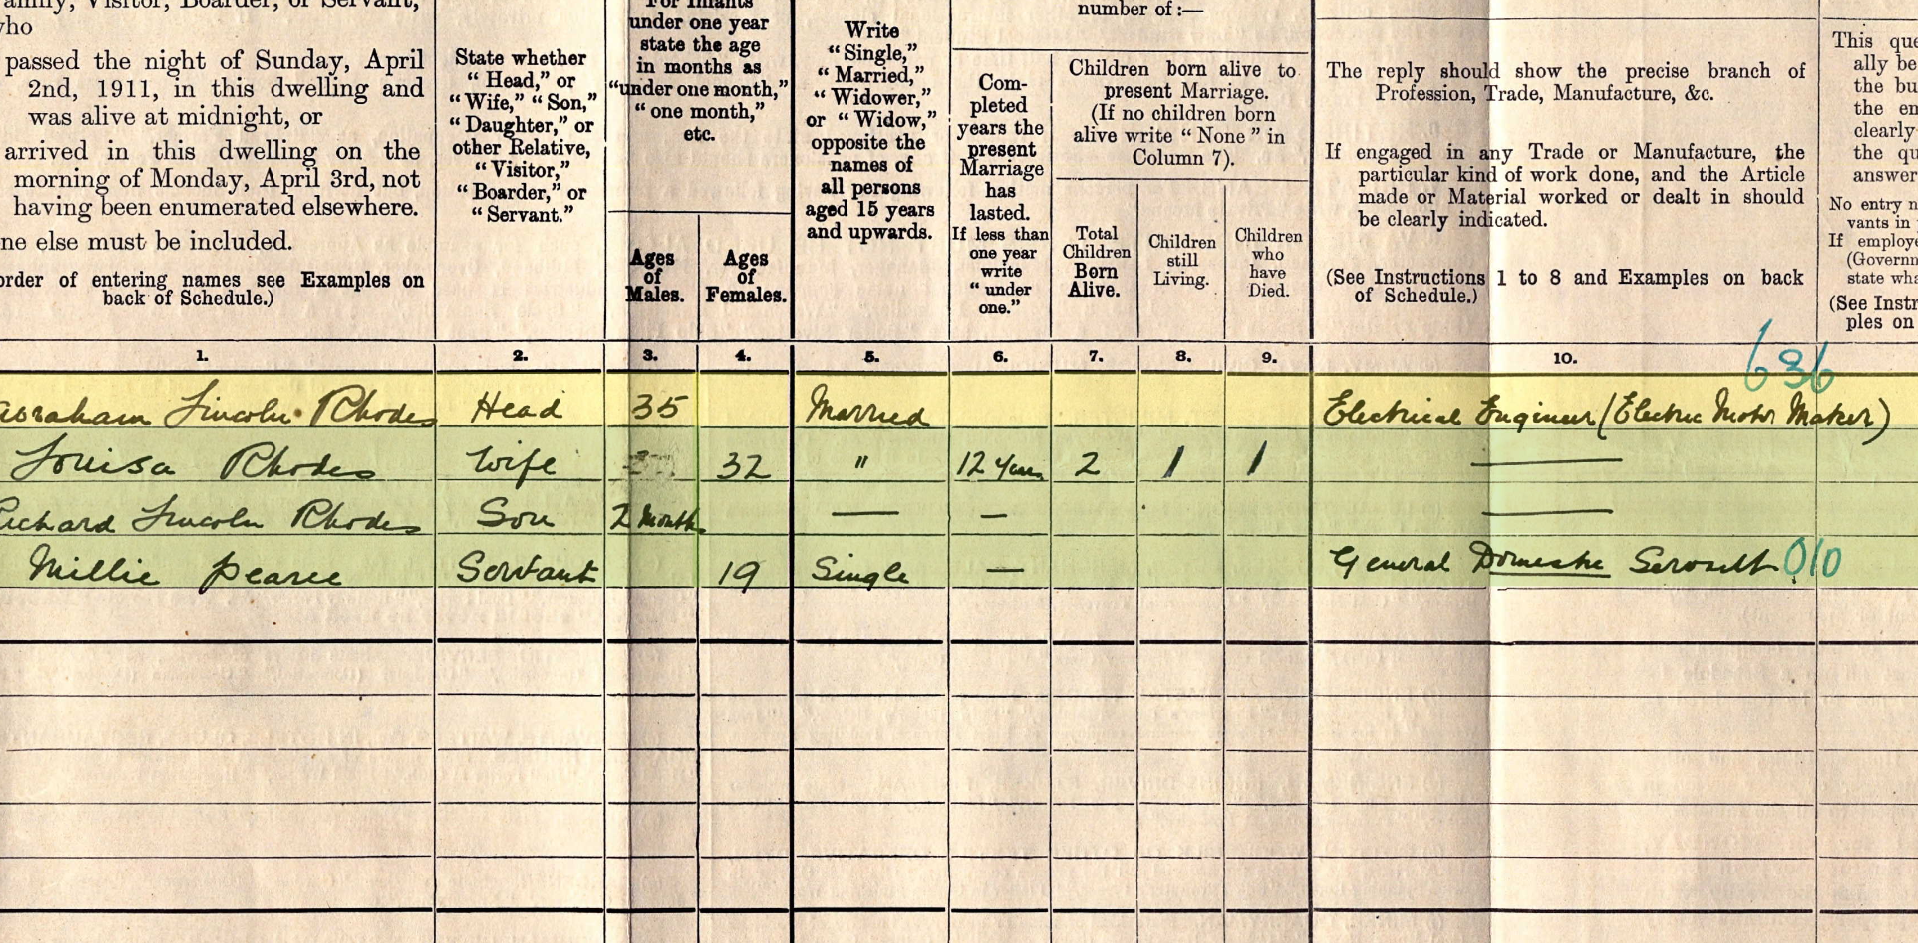 amily, Visitor, Boarder, or Servant,
who
passed the night of Sunday, April
2nd, 1911, in this dwelling and
was alive at midnight, or
arrived in this dwelling on the
morning of Monday, April 3rd, not
having been enumerated elsewhere.
ne else must be included.
order of entering names see Examples on
back of Schedule.)
State whether
"Head," or
"Wife," "Son,"
"Daughter," or
other Relative,
"Visitor,"
"Boarder," or
"Servant."
For Infants
under one year
state the age
in months as
"under one month,"
"one month,"
etc.
Ages
of
Males.
Ages
of
Females.
Write
"Single,"
"Married,"
"Widower,"
or "Widow,"
opposite the
names of
all persons
aged 15 years
and upwards.
number of:—
Com-
pleted
years the
present
Marriage
has
lasted.
If less than
one year
write
"under
one."
Children born alive to
present Marriage.
(If no children born
alive write "None" in
Column 7).
Total
Children
Born
Alive.
Children
still
Living.
Children
who
have
Died.
The reply should show the precise branch of
Profession, Trade, Manufacture, &c.
If engaged in any Trade or Manufacture, the
particular kind of work done, and the Article
made or Material worked or dealt in should
be clearly indicated.
(See Instructions 1 to 8 and Examples on back
of Schedule.)
This que
ally be
the bu
the em
clearly
the qu
answer
No entry n
vants in
If employe
(Governm
state wha
(See Instr
ples on
1. 2. 3. 4. 5. 6. 7. 8. 9. 10.
636
Abraham Lincoln Rhodes Head 35 Married Electrical Engineer (Electric Motor Maker)
Louisa Rhodes Wife 32 " 12 Years 2 1 1 —
Richard Lincoln Rhodes Son 2 Months — — —
Millie Pearce Servant 19 Single — General Domestic Servant 010